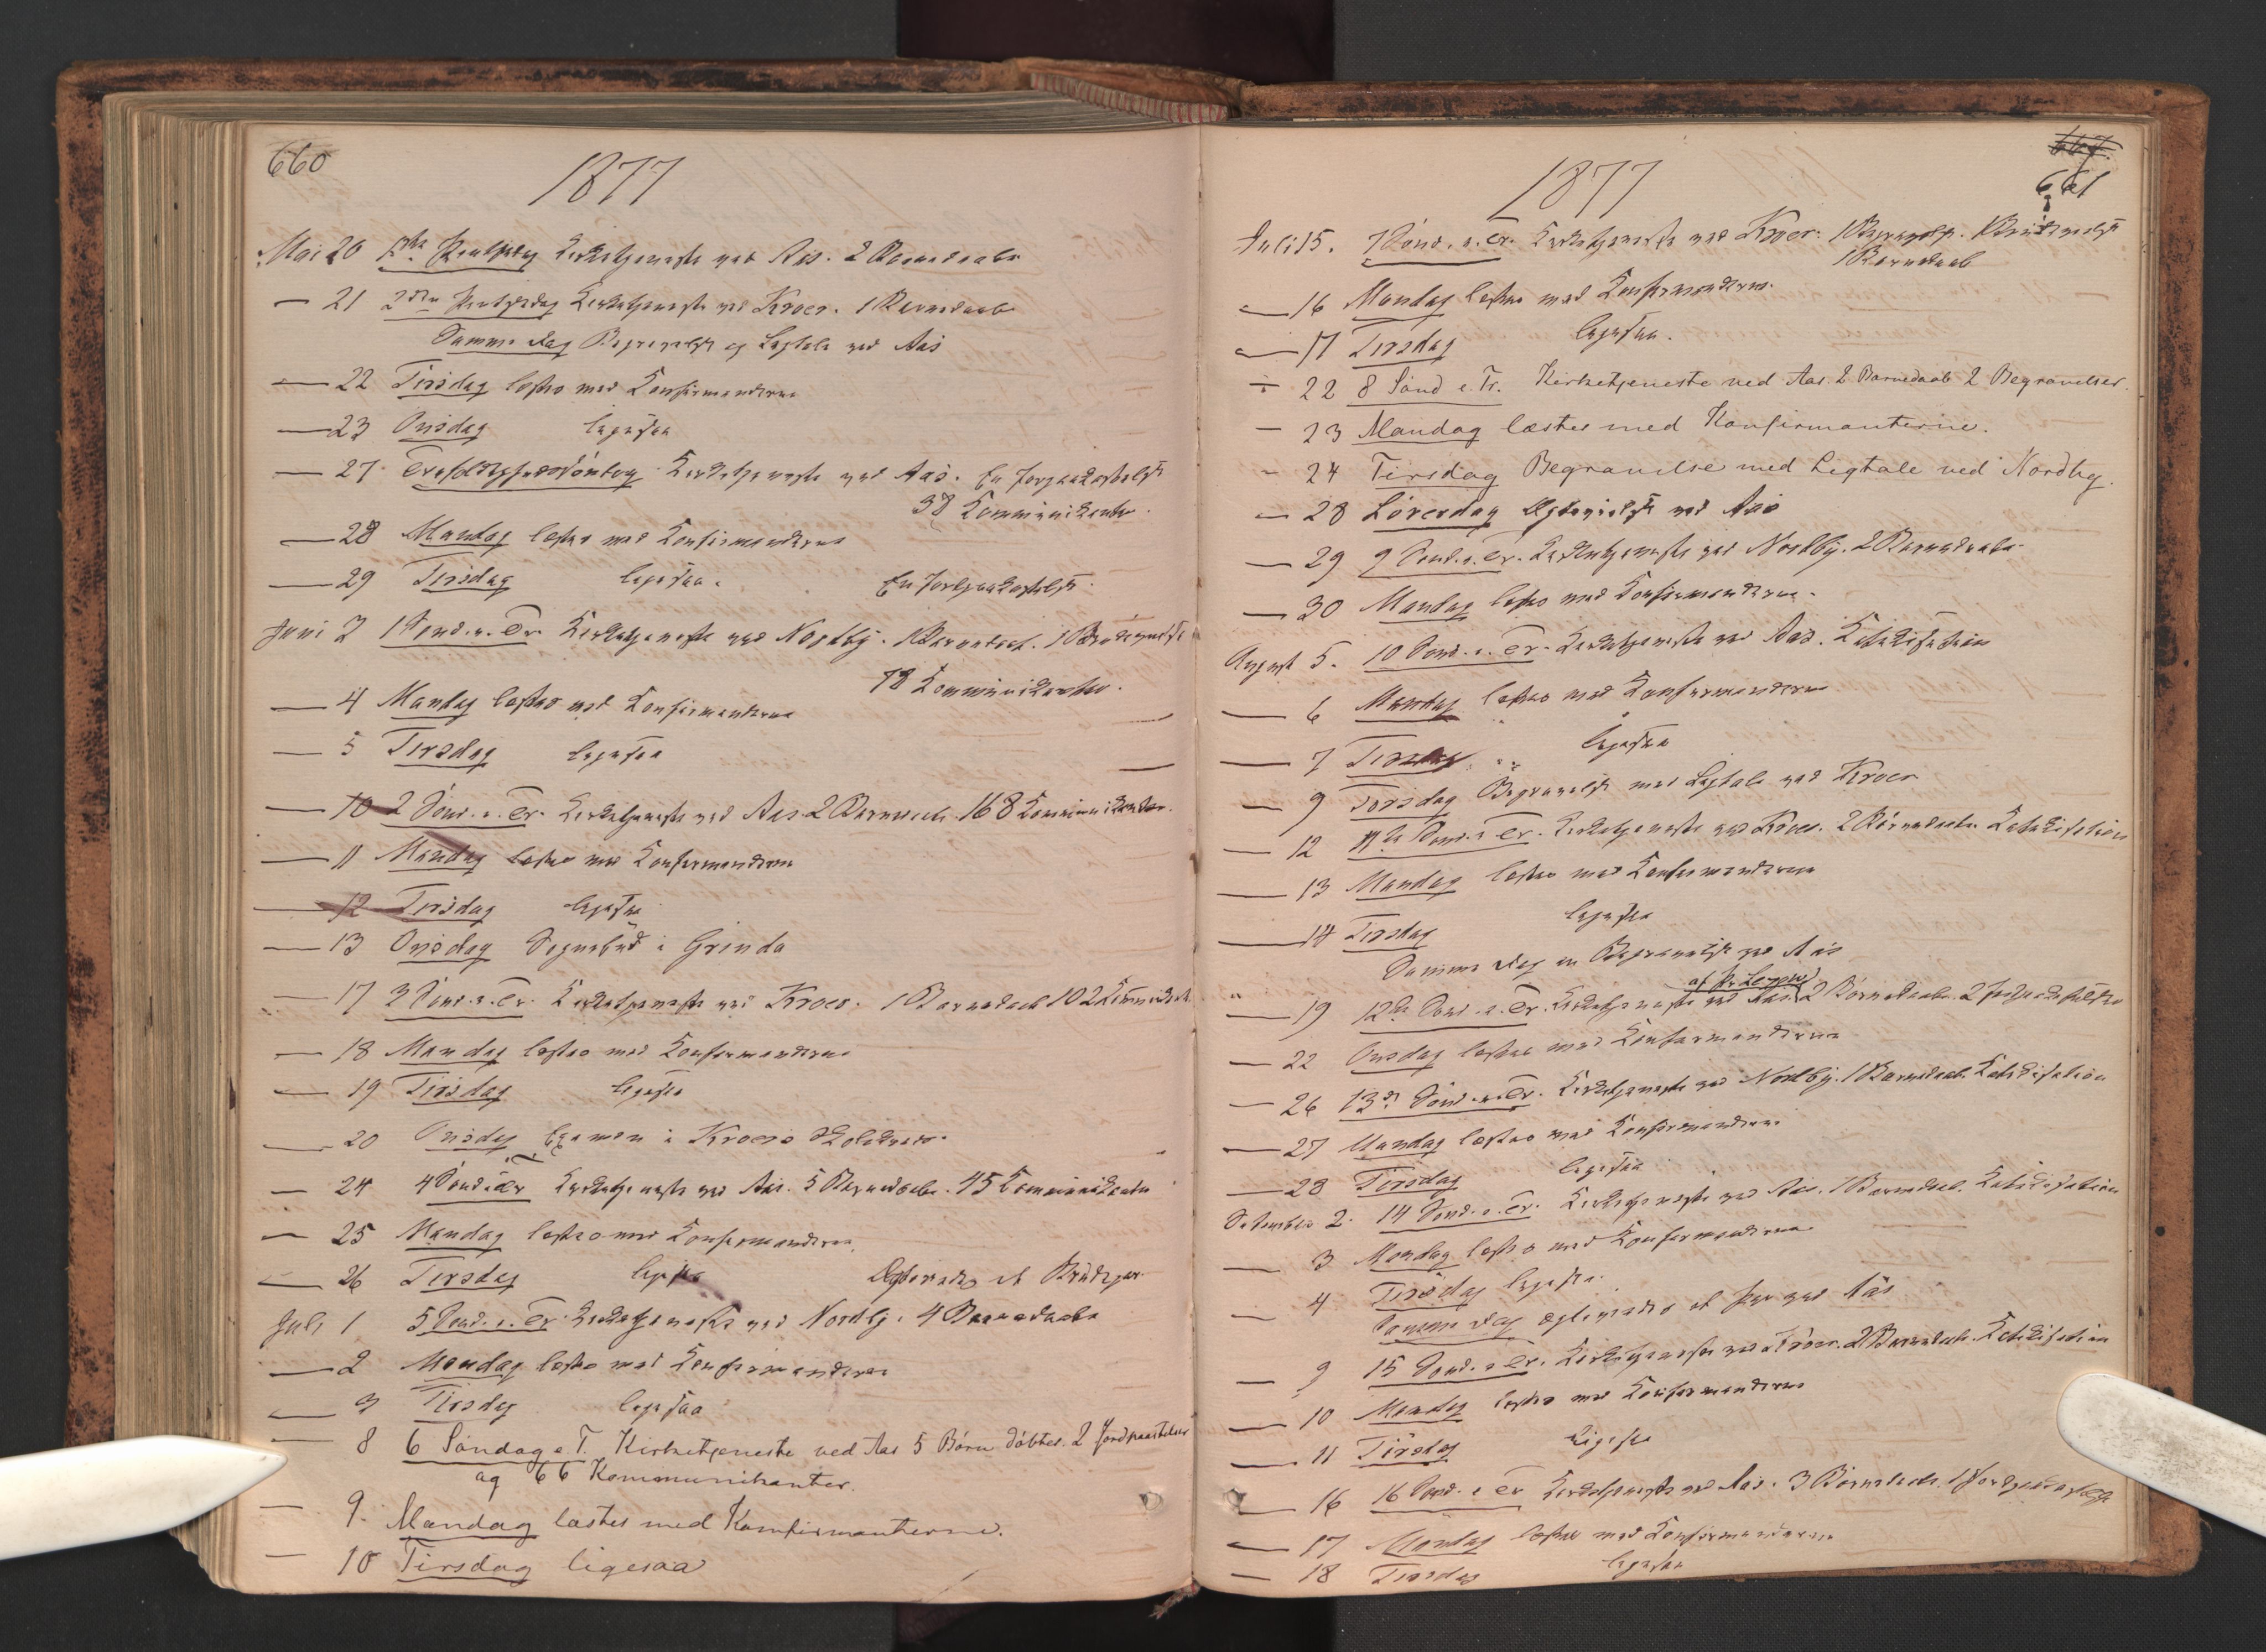 660
1877
Mai 20 1ste Pintsedag Kirketjeneste ved Aas. 2 Barnedaabe
— 21 2den Pintsedag Kirketjeneste ved Kroer. 1 Barnedaab
Samme Dag Begravelse og Ligtale ved Aas
— 22 Tirsdag læstes med Konfirmanderne
— 23 Onsdag ligesaa
— 27 Trefoldighedssøndag Kirketjeneste ved Aas. En Jordpaakastelse
38 Kommunikanter.
— 28 Mandag læstes med Konfirmanderne
— 29 Tirsdag ligesaa. En Jordpaakastelse.
Juni 3 1 Sønd. e. Tr. Kirketjeneste ved Nordby. 1 Barnedaab. 1 Brudevielse
78 Kommunikanter.
— 4 Mandag læstes med Konfirmanderne
— 5 Tirsdag ligesaa
— 10 2 Sønd. e. Tr. Kirketjeneste ved Aas 2 Barnedaab. 168 Kommunikanter.
— 11 Mandag læstes med Konfirmanderne
— 12 Tirsdag ligesaa
— 13 Onsdag Sognebud i Grinda
— 17 3 Sønd. e. Tr. Kirketjeneste ved Kroer. 1 Barnedaab 102 Kommunik.
— 18 Mandag læstes med Konfirmanderne
— 19 Tirsdag ligesaa
— 20 Onsdag Examen i Kroers Skolekreds.
— 24 4 Sønd. e. Tr Kirketjeneste ved Aas. 5 Barnedaabe. 45 Kommunikanter
— 25 Mandag læstes med Konfirmanderne
— 26 Tirsdag ligesaa Ægteviedes et Brudepar.
Juli 1 5 Sønd. e. Tr. Kirketjeneste ved Nordby. 4 Barnedaabe
— 2 Mandag læstes med Konfirmanderne
— 3 Tirsdag ligesaa
— 8 6 Søndag e. T. Kirketjeneste ved Aas 5 Børn døbtes. 2 Jordpaastelser
og 66 Kommunikanter.
— 9. Mandag læstes med Konfirmanterne.
— 10 Tirsdag ligesaa
661
1877
Juli 15. 7 Sønd. e. Tr. Kirketjeneste ved Kroer. 1 Begravelse. 1 Brudevielse
1 Barnedaab
— 16 Mandag læstes med Konfirmanderne.
— 17 Tirsdag ligesaa.
— 22 8 Sønd e. Tr. Kirketjeneste ved Aas. 2 Barnedaab 2 Begravelser.
— 23 Mandag læstes med Konfirmanterne.
— 24 Tirsdag Begravelse med Ligtale ved Nordby.
— 28 Løverdag Ægtevielse ved Aas
— 29 9 Sønd. e. Tr. Kirketjeneste ved Nordby. 2 Barnedaabe
— 30 Mandag læstes med Konfirmanderne.
August 5. 10 Sønd. e. Tr. Kirketjeneste ved Aas. Katekisation
— 6 Mandag læstes med Konfirmanderne
— 7 Tirsdag ligesaa
— 9 Torsdag Begravelse med Ligtale ved Kroer
— 12 11te Sønd. e Tr. Kirketjeneste ved Kroer. 2 Barnedaabe. Katekisation
— 13 Mandag læstes med Konfirmanderne
— 14 Tirsdag ligesaa
Samme Dag en Begravelse ved Aas
— 19 12te Sønd. e. Tr. Kirketjeneste ved Aas 2 Barnedaabe. 2 Jordpaakastelser
— 22 Onsdag læstes med Konfirmanderne
— 26 13de Sønd. e. Tr. Kirketjeneste ved Nordby. 1 Barnedaab. Katekisation
— 27 Mandag læstes med Konfirmanderne
— 28 Tirsdag ligesaa
September 2. 14 Sønd. e. Tr. Kirketjeneste ved Aas. 1 Barnedaab. Katekisation
— 3 Mandag læstes med Konfirmanderne
— 4 Tirsdag ligesaa.
Samme Dag ægteviedes et Par ved Aas
— 9 15 Sønd. e Tr. Kirketjeneste ved Kroer. 2 Barnedaab. Katekisation
— 10 Mandag læstes med Konfirmanderne
— 11 Tirsdag ligesaa
— 16 16 Sønd. e Tr Kirketjeneste ved Aas. 3 Barnedaab. 1 Jordpaakastelse
— 17 Mandag læstes med Konfirmanderne
— 18 Tirsdag ligesaa